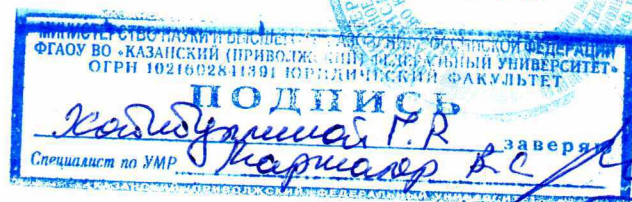 МИНИСТЕРСТВО НАУКИ И ВЫСШЕГО ОБРАЗОВАНИЯ РОССИЙСКОЙ ФЕДЕРАЦИИ
ФГАОУ ВО «КАЗАНСКИЙ (ПРИВОЛЖСКИЙ) ФЕДЕРАЛЬНЫЙ УНИВЕРСИТЕТ»
ОГРН 1021602841391 ЮРИДИЧЕСКИЙ ФАКУЛЬТЕТ
ПОДПИСЬ
Хабибуллиной Г.Р заверяю
Специалист по УМР
КАЗАНСКИЙ ПРИВОЛЖСКИЙ ФЕДЕРАЛЬНЫЙ